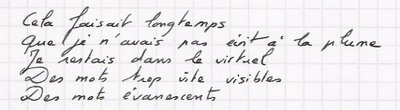 Cela faisait longtemps
Que je n'avais pas écrit à la plume
Je restais dans le virtuel
Des mots trop vite visibles
Des mots évanescents